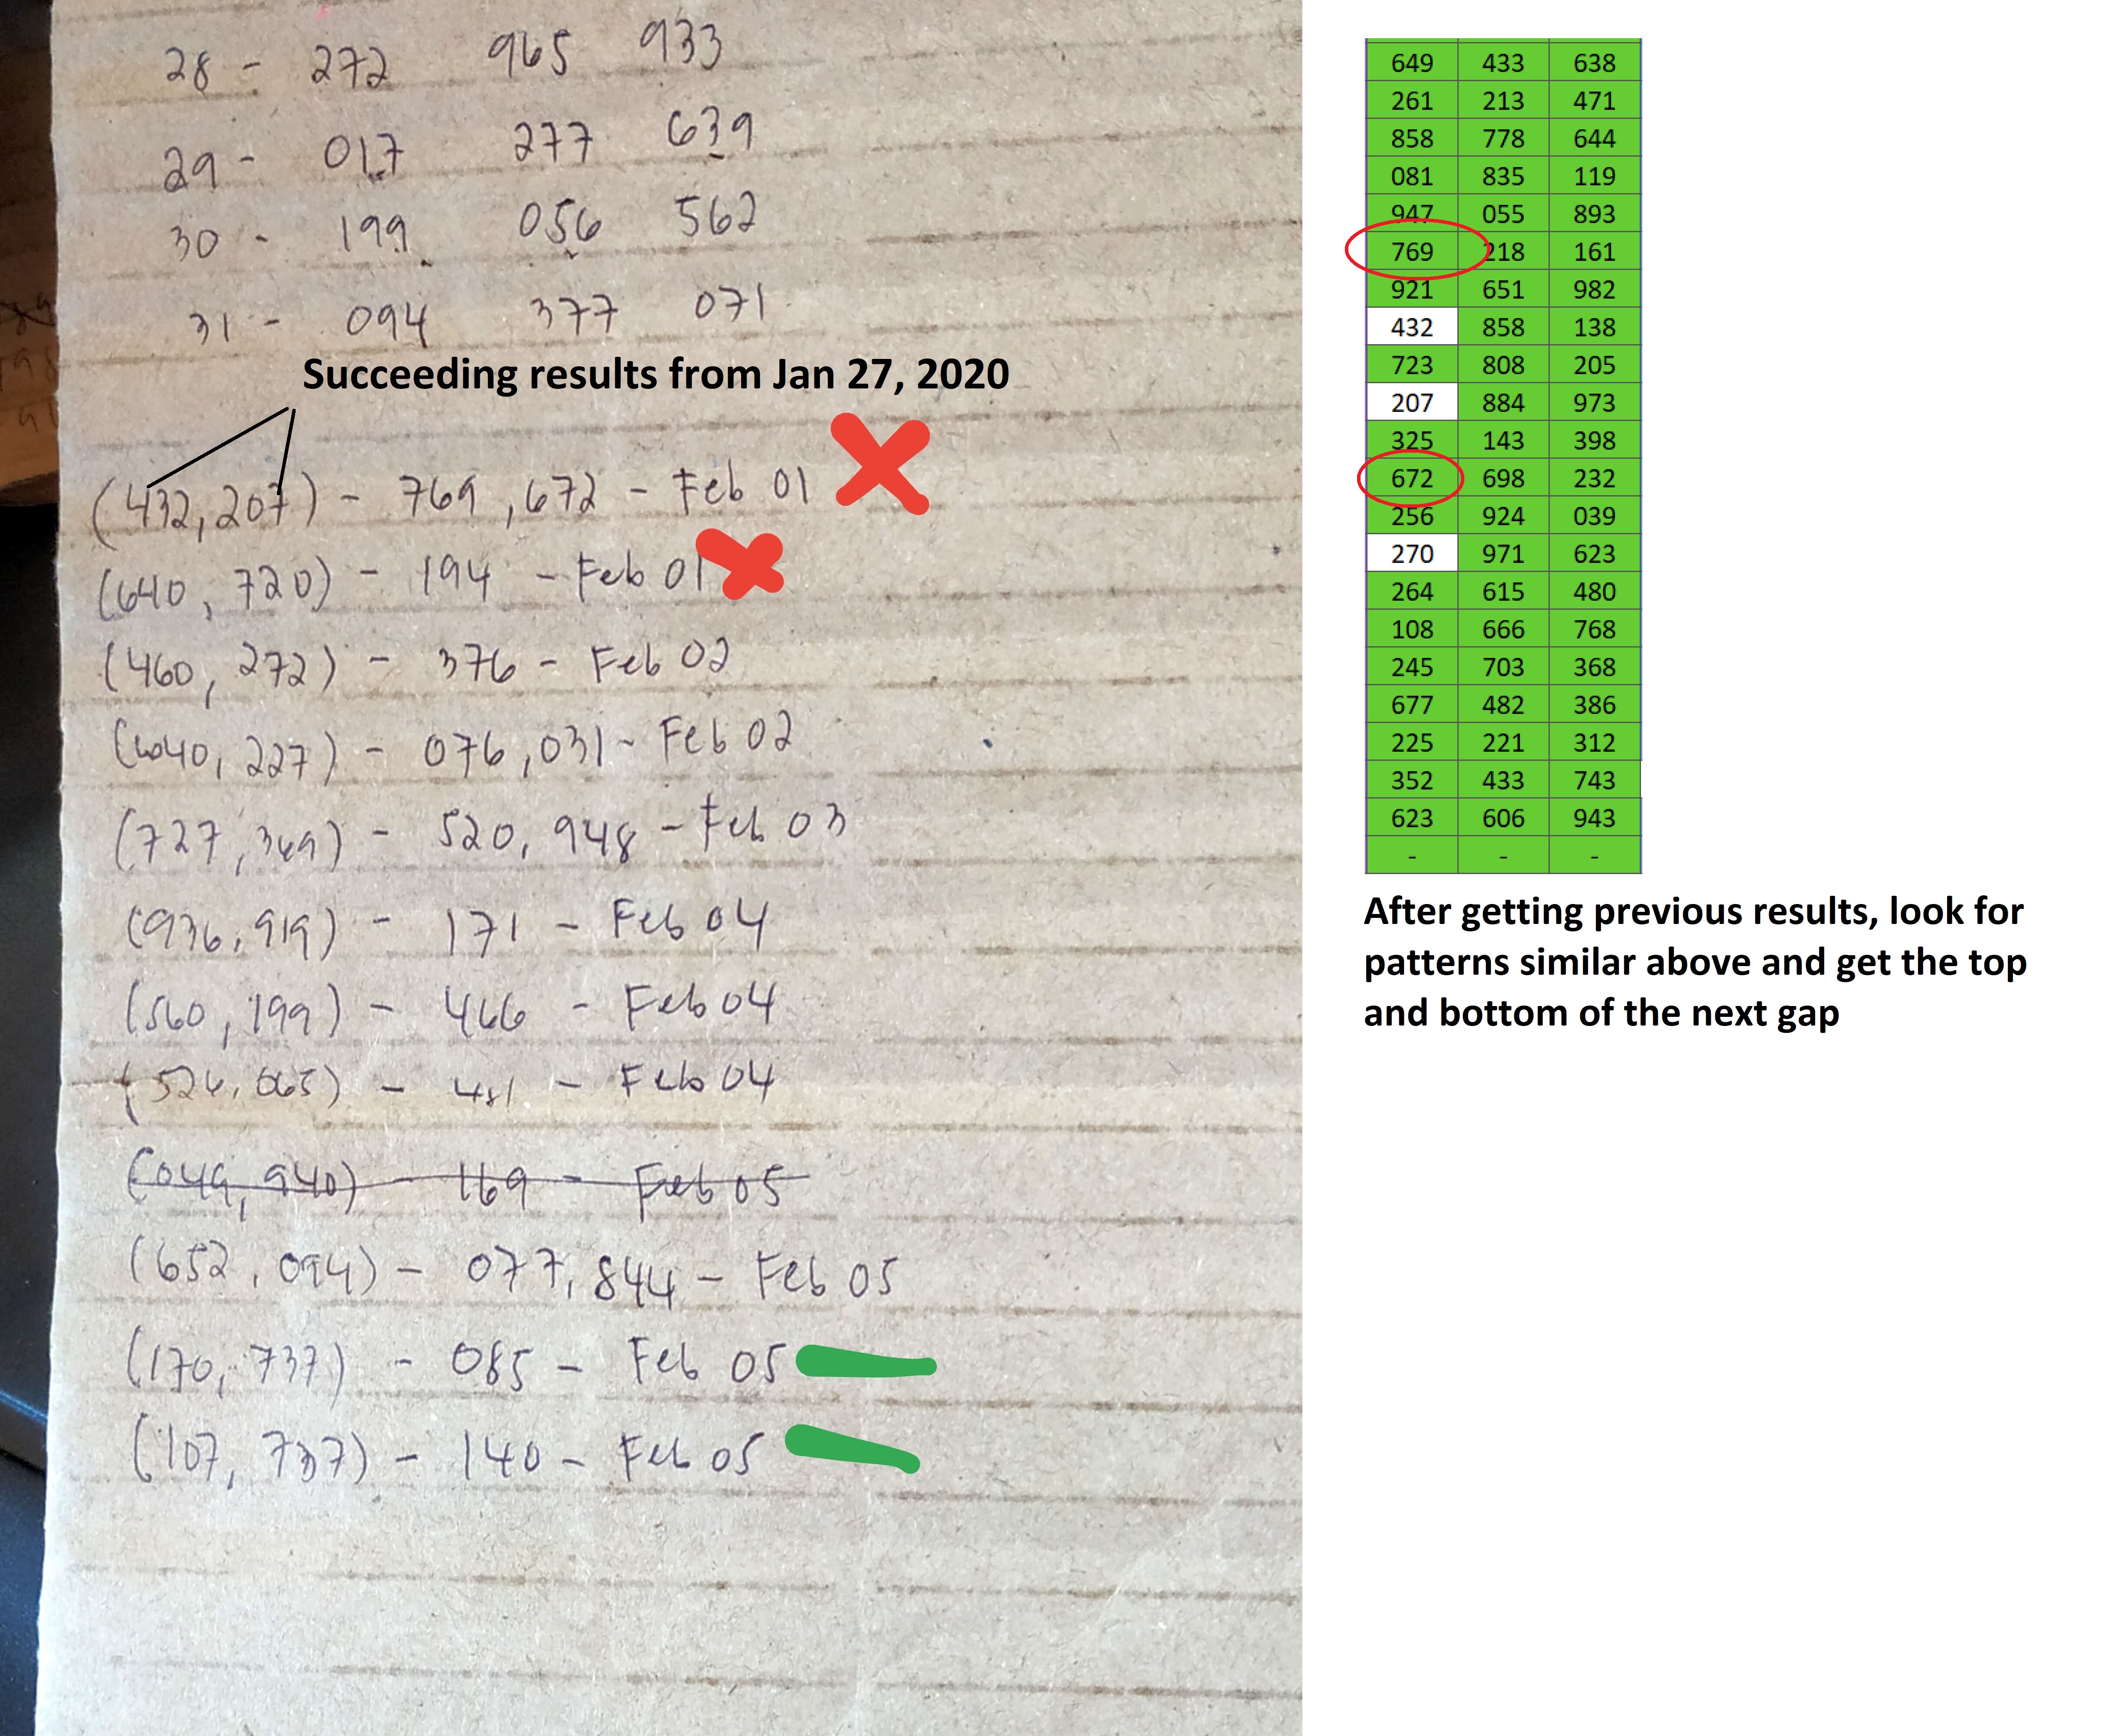 28 - 272 965 933
29 - 017 277 639
30 - 199 056 562
31 - 094 377 071
Succeeding results from Jan 27, 2020
(432, 207) - 769, 672 - Feb 01
(640, 720) - 194 - Feb 01
(460, 272) - 376 - Feb 02
(6040, 227) - 076, 031 - Feb 02
(727, 369) - 520, 948 - Feb 03
(936, 919) - 171 - Feb 04
(560, 199) - 466 - Feb 04
(526, 065) - 481 - Feb 04
(049, 940) - 169 - Feb 05
(652, 094) - 077, 844 - Feb 05
(170, 737) - 085 - Feb 05
(107, 737) - 140 - Feb 05
649 433 638
261 213 471
858 778 644
081 835 119
947 055 893
769 218 161
921 651 982
432 858 138
723 808 205
207 884 973
325 143 398
672 698 232
256 924 039
270 971 623
264 615 480
108 666 768
245 703 368
677 482 386
225 221 312
352 433 743
623 606 943
- - -
After getting previous results, look for
patterns similar above and get the top
and bottom of the next gap